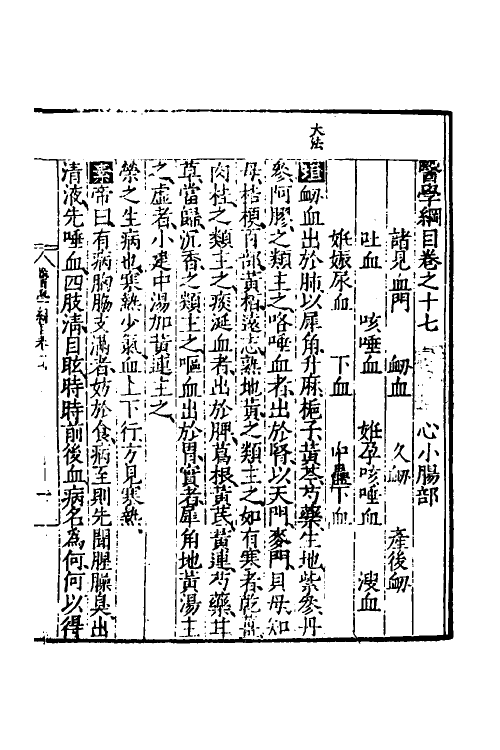 醫學綱目卷之十七 心小腸部
諸見血門 衂血 久衂 產後衂
吐血 咳唾血 姙孕咳唾血 溲血
姙娠尿血 下血 中蠱下血
大法
垣衂血出於肺以犀角升麻梔子黃芩芍藥生地紫參丹
參阿膠之類主之咯唾血者出於腎以天門麥門貝母知
母桔梗百部黃栢遠志熟地黃之類主之如有寒者乾薑
肉桂之類主之痰涎血者出於脾葛根黃芪黃連芍藥甘
草當歸沉香之類主之嘔血出於胃實者犀角地黃湯主
之虛者小建中湯加黃連主之
榮之生病也寒熱少氣血上下行方見寒熱
素帝曰有病胸脇支滿者妨於食病至則先聞腥臊臭出
清液先唾血四肢清目眩時時前後血病名為何何以得